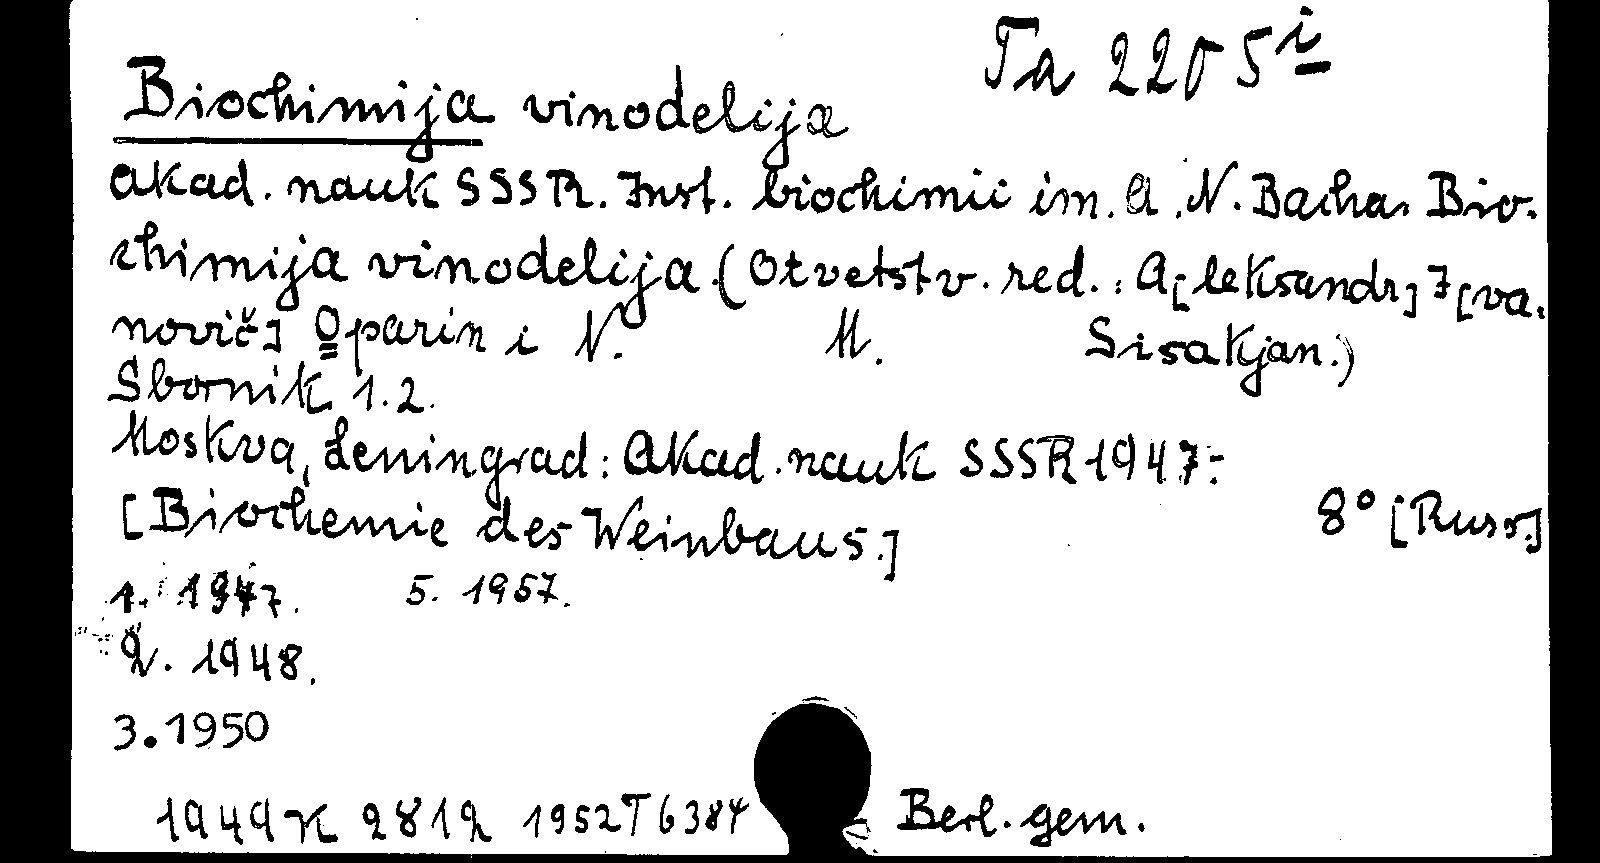 Ta 2205 i
Biochimija vinodelija
Akad. nauk SSSR. Inst. biochimii im. A. N. Bacha. Bio-
chimija vinodelija. (Otvetstv. red.: A[leksandr] I[va-
novič] Oparin i N. M. Sisakjan.)
Sbornik 1.2.
Moskva, Leningrad: Akad. nauk SSSR 1947-
8° [Russ.]
[Biochemie des Weinbaus.]
1. 1947. 5. 1957.
2. 1948.
3. 1950
1949 K 2812 1952 T 6384 Berl. gem.